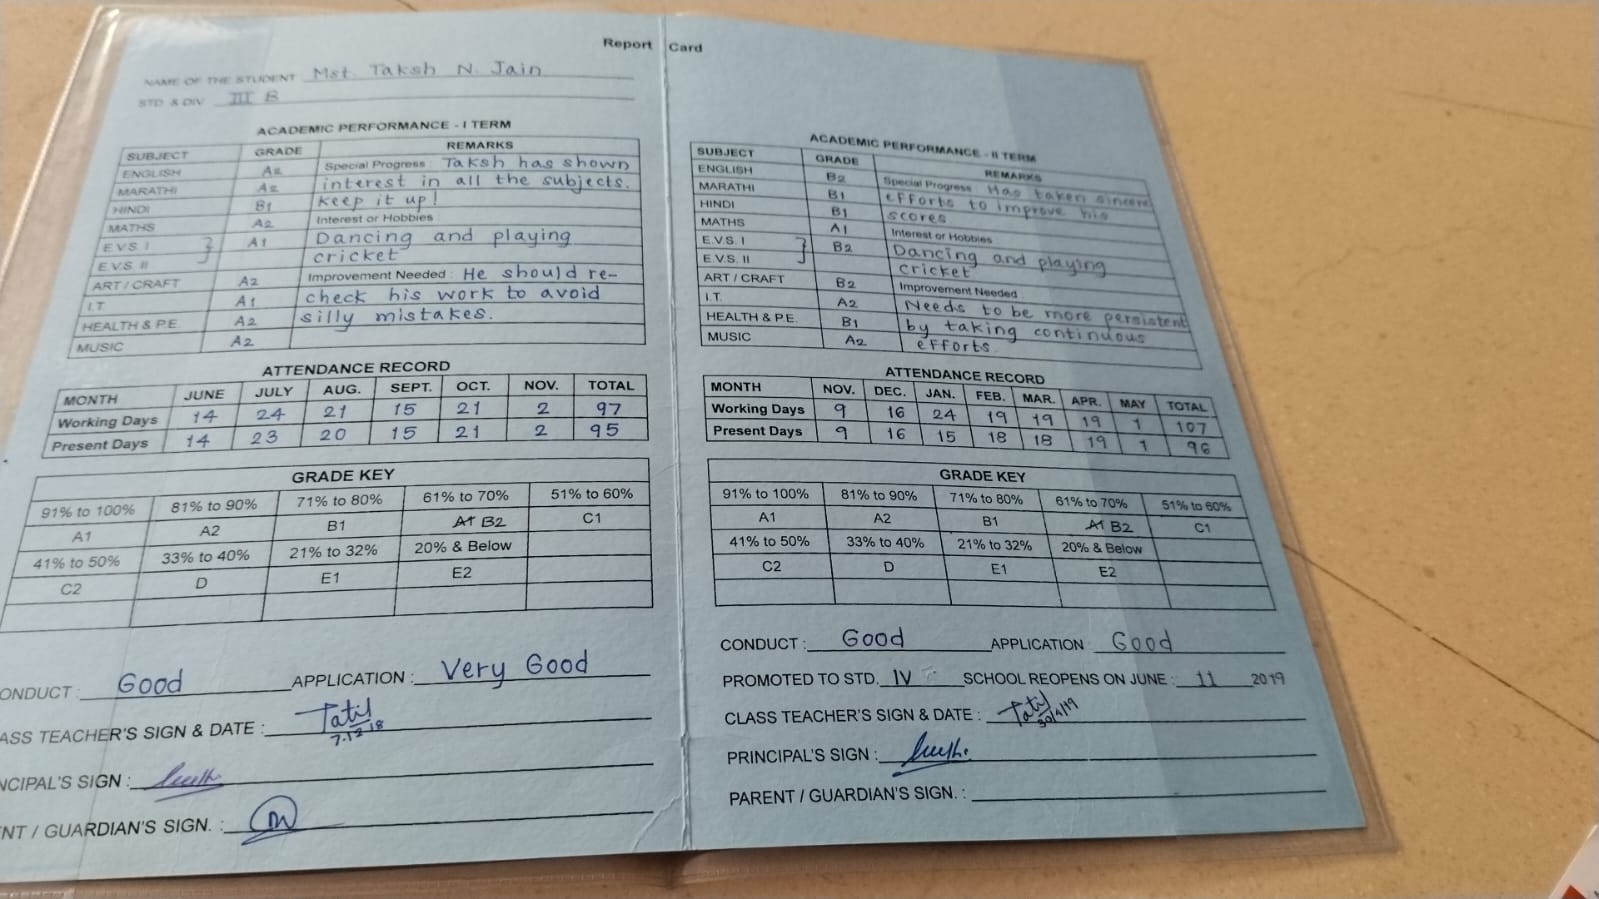 Report Card
NAME OF THE STUDENT Mst. Taksh N. Jain
STD. & DIV. III B
ACADEMIC PERFORMANCE - I TERM
SUBJECT GRADE REMARKS
ENGLISH A2 Special Progress : Taksh has shown
MARATHI A2 interest in all the subjects.
HINDI B1 Keep it up!
MATHS A2 Interest or Hobbies
E.V.S. I } A1 Dancing and playing
E.V.S. II cricket
ART / CRAFT A2 Improvement Needed : He should re-
I.T. A1 check his work to avoid
HEALTH & P.E. A2 silly mistakes.
MUSIC A2
ATTENDANCE RECORD
MONTH JUNE JULY AUG. SEPT. OCT. NOV. TOTAL
Working Days 14 24 21 15 21 2 97
Present Days 14 23 20 15 21 2 95
GRADE KEY
91% to 100% 81% to 90% 71% to 80% 61% to 70% 51% to 60%
A1 A2 B1 A1 B2 C1
41% to 50% 33% to 40% 21% to 32% 20% & Below
C2 D E1 E2
ONDUCT : Good APPLICATION : Very Good
ASS TEACHER'S SIGN & DATE : 7.12.18
NCIPAL'S SIGN :
NT / GUARDIAN'S SIGN. :
ACADEMIC PERFORMANCE - II TERM
SUBJECT GRADE REMARKS
ENGLISH B2 Special Progress Has taken sincere
MARATHI B1 efforts to improve his
HINDI B1 scores.
MATHS A1 Interest or Hobbies
E.V.S. I } B2 Dancing and playing
E.V.S. II cricket
ART / CRAFT B2 Improvement Needed
I.T. A2 Needs to be more persistent
HEALTH & P.E. B1 by taking continuous
MUSIC A2 efforts.
ATTENDANCE RECORD
MONTH NOV. DEC. JAN. FEB. MAR. APR. MAY TOTAL
Working Days 9 16 24 19 19 19 1 107
Present Days 9 16 15 18 18 19 1 96
GRADE KEY
91% to 100% 81% to 90% 71% to 80% 61% to 70% 51% to 60%
A1 A2 B1 A1 B2 C1
41% to 50% 33% to 40% 21% to 32% 20% & Below
C2 D E1 E2
CONDUCT : Good APPLICATION : Good
PROMOTED TO STD. IV SCHOOL REOPENS ON JUNE : 11 2019
CLASS TEACHER'S SIGN & DATE : 30/4/19
PRINCIPAL'S SIGN :
PARENT / GUARDIAN'S SIGN. :